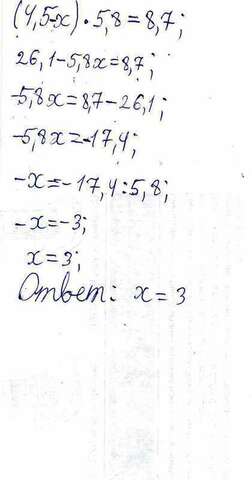 (4,5-x) · 5,8 = 8,7;
26,1-5,8x=8,7;
-5,8x=8,7-26,1;
-5,8x=-17,4;
-x=-17,4:5,8;
-x=-3;
x=3;
Ответ: x = 3